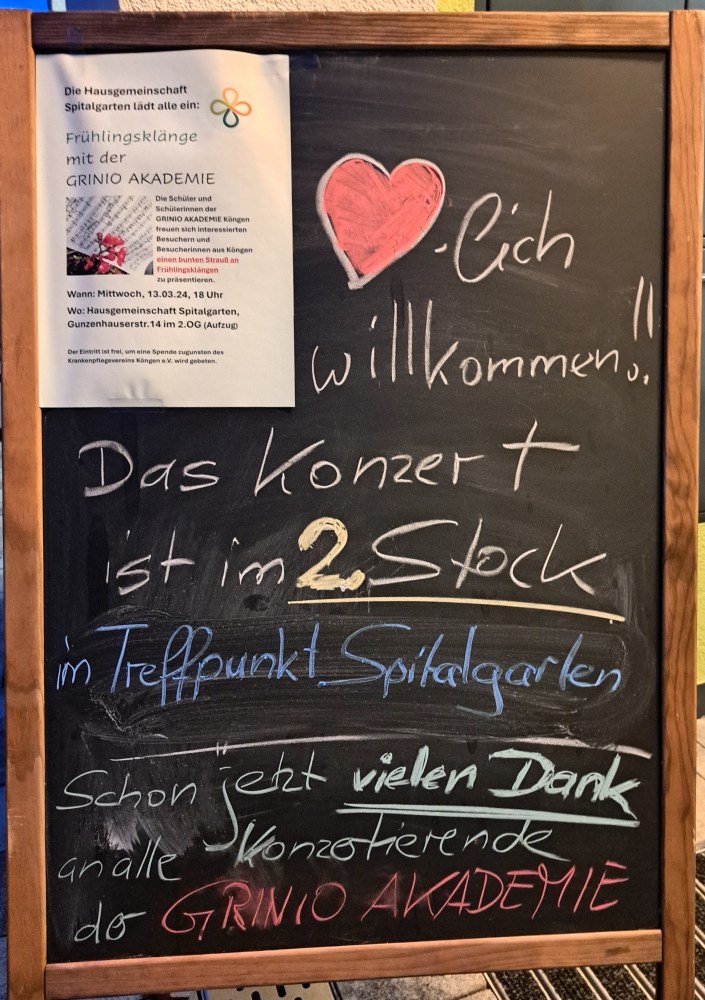 Die Hausgemeinschaft
Spitalgarten lädt alle ein:
Frühlingsklänge
mit der
GRINIO AKADEMIE
Die Schüler und
Schülerinnen der
GRINIO AKADEMIE Köngen
freuen sich interessierten
Besuchern und
Besucherinnen aus Köngen
einen bunten Strauß an
Frühlingsklängen
zu präsentieren.
Wann: Mittwoch, 13.03.24, 18 Uhr
Wo: Hausgemeinschaft Spitalgarten,
Gunzenhauserstr.14 im 2.OG (Aufzug)
Der Eintritt ist frei, um eine Spende zugunsten des
Krankenpflegevereins Köngen e.V. wird gebeten.
-lich
willkommen!!
Das Konzert
ist im 2. Stock
im Treffpunkt Spitalgarten
Schon jetzt vielen Dank
an alle Konzertierende
der GRINIO AKADEMIE